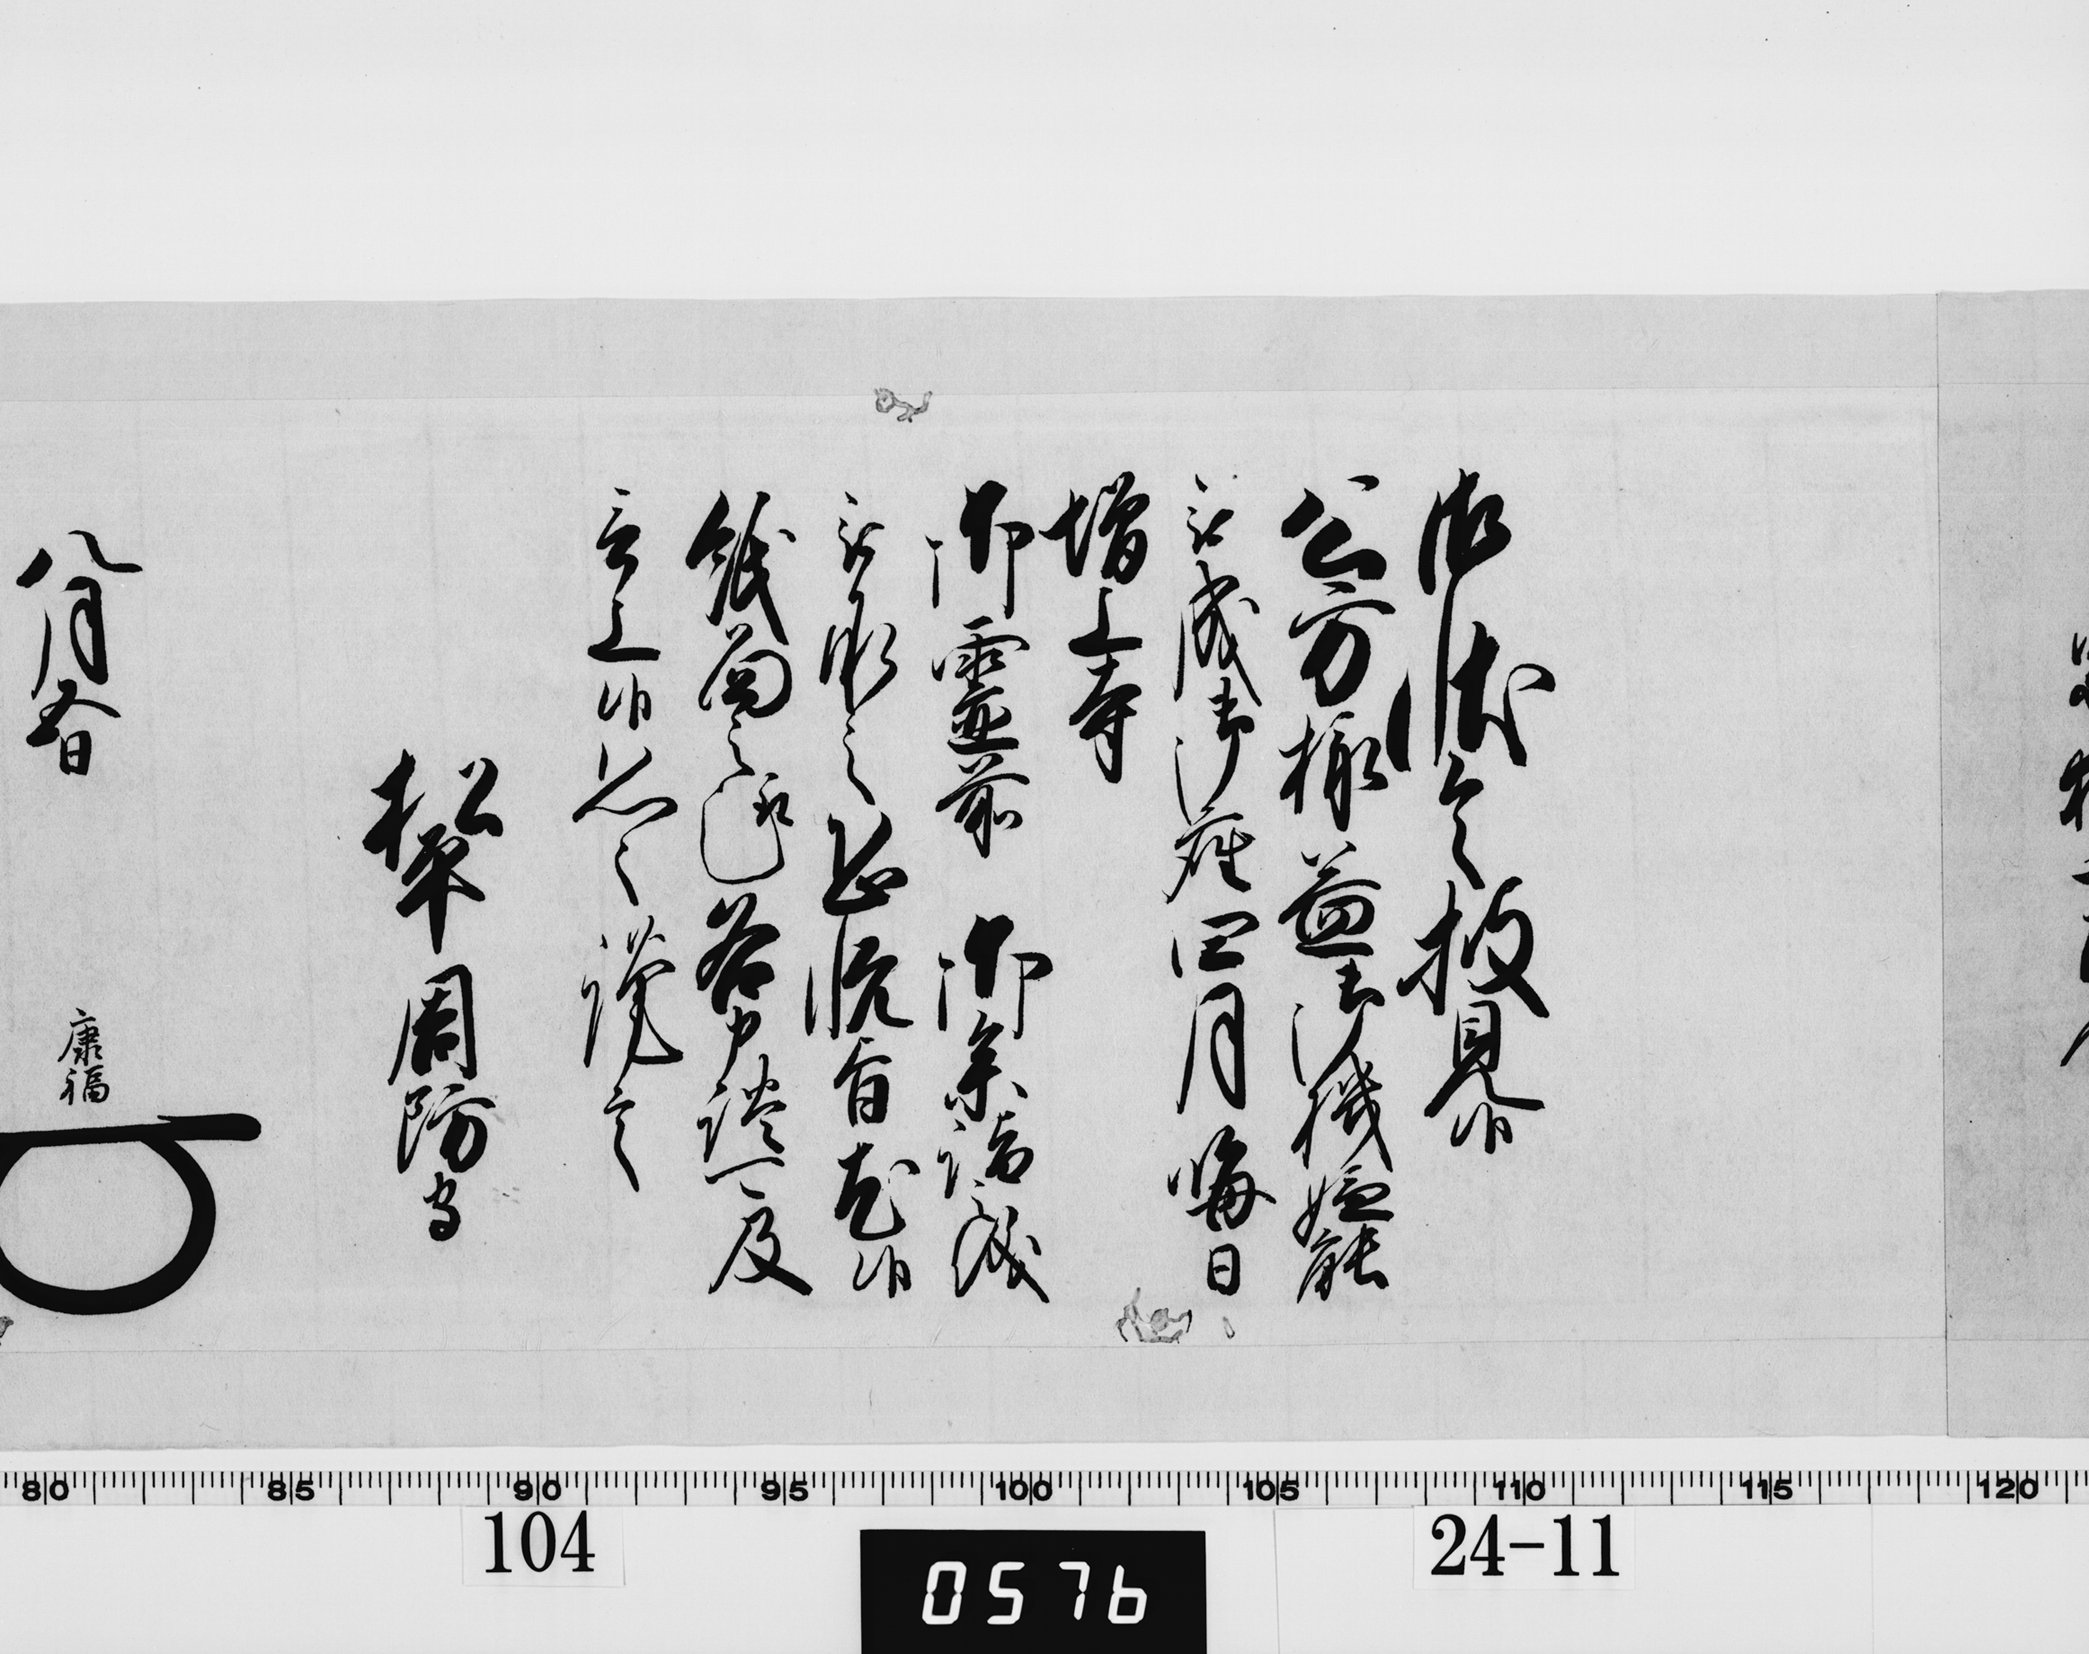 御状令披見候
公方様益御機嫌能
被成御座四月晦日
増上寺
御霊前 御参詣之儀
被承之恐悦旨尤候
紙面之趣各申談可及
言上候恐々謹言
松平周防守
八月五日 康福
80 85 90 95 100 105 110 115 120
104
24-11
0576